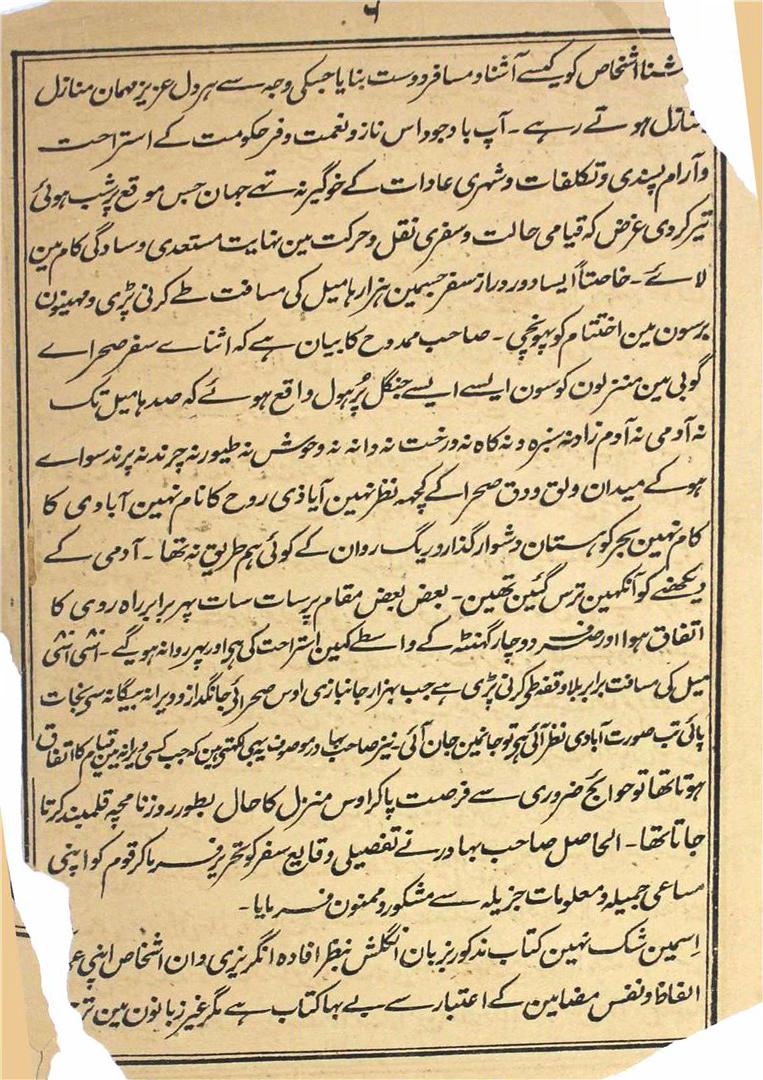 ۶
شنا اشخاص کو کیسے آشنا و مسافر دوست بنایا جسکی وجہ سے ہر دل عزیز مہمان منازل
نازل ہوتے رہے ۔ آپ باوجود اس ناز و نعمت و فر حکومت کے استراحت
و آرام پسندی و تکلفات و شہری عادات کے خوگیر نہ تھے جہان جس موقع پر شب ہوئی
تیر کردی غرض کہ قیامی حالت و سفری نقل و حرکت مین نہایت مستعدی و سادگی کام مین
لائے ۔ خاصتاً ایسا دور دراز سفر جسمین ہزارہا میل کی مسافت طے کرنی پڑی و مہینون
برسون مین اختتام کو پہونچی ۔ صاحب ممدوح کا بیان ہے کہ اثناے سفر صحراے
گوبی مین منزلون کوسون ایسے ایسے جنگل پُر ہول واقع ہوئے کہ صدہا میل تک
نہ آدمی نہ آدم زاد نہ سبزہ و نہ کاہ نہ درخت نہ دانہ نہ وحوش نہ طیور نہ چرند نہ پرند سواے
ہو کے میدان و لق و دق صحرا کے کچہہ نظر نہین آیا ذی روح کا نام نہین آبادی کا
کام نہین بجز کوہستان دشوار گذار و ریگ روان کے کوئی ہم طریق نہ تھا ۔ آدمی کے
دیکھنے کو آنکھین ترس گئین تھین ۔ بعض بعض مقام پر سات سات پہر برابر راہ روی کا
اتفاق ہوا اور صرف دو چار گھنٹہ کے واسطے کہین استراحت کی ہو اور پہر روانہ ہو گیے ۔ اشی اشی
میل کی مسافت برابر بلا وقفہ طے کرنی پڑی ہے جب بہزار جانبازی اوس صحرائے جانگداز و ویرانہ بیگانہ سے نجات
پائی تب صورت آبادی نظر آئی ہے تو جانمین جان آئی ۔ نیز صاحب بہادر موصوف یہی لکھتے ہین کہ جب کسی ویرانہ مین قیام کا اتفاق
ہوتا تھا تو حوائج ضروری سے فرصت پاکر اوس منزل کا حال بطور روزنامچہ قلمبند کرتا
جاتا تھا ۔ الحاصل صاحب بہادر نے تفصیلی وقایع سفر کو تحریر فرماکر قوم کو اپنی
مساعی جمیلہ و معلومات جزیلہ سے مشکور و ممنون فرمایا ۔
اِسمین شک نہین کتاب مذکور بزبان انگلش بنظر افادہ انگریزی دان اشخاص اپنی
الفاظ و نفس مضامین کے اعتبار سے بے بہا کتاب ہے مگر غیر زبانون مین